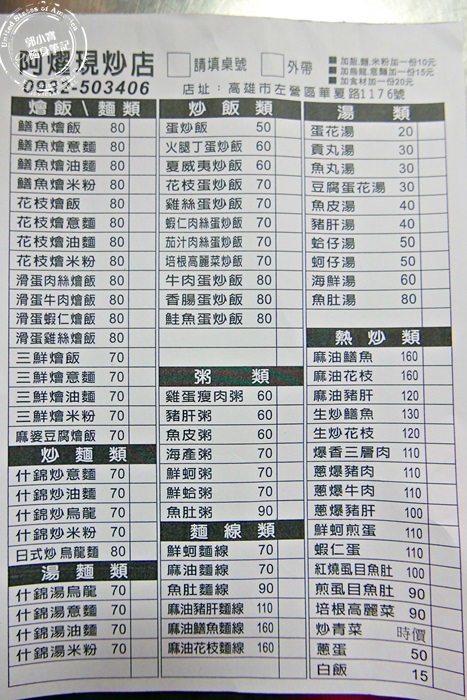 United States of America
郭小寶
隨身筆記
阿燦現炒店
0932-503406
請填桌號
外帶
加飯.麵.米粉加一份10元
加烏龍.意麵加一份15元
加食材加一份20元
店址:高雄市左營區華夏路1176號
燴飯\麵類
鱔魚燴飯 80
鱔魚燴意麵 80
鱔魚燴油麵 80
鱔魚燴米粉 80
花枝燴飯 80
花枝燴意麵 80
花枝燴油麵 80
花枝燴米粉 80
滑蛋肉絲燴飯 80
滑蛋牛肉燴飯 80
滑蛋蝦仁燴飯 80
滑蛋雞絲燴飯 80
三鮮燴飯 70
三鮮燴意麵 70
三鮮燴油麵 70
三鮮燴米粉 70
麻婆豆腐燴飯 70
炒麵類
什錦炒意麵 70
什錦炒油麵 70
什錦炒烏龍 70
什錦炒米粉 70
日式炒烏龍麵 80
湯麵類
什錦湯烏龍 70
什錦湯意麵 70
什錦湯油麵 70
什錦湯米粉 70
炒飯類
蛋炒飯 50
火腿丁蛋炒飯 60
夏威夷炒飯 60
花枝蛋炒飯 70
雞絲蛋炒飯 70
蝦仁肉絲蛋炒飯 70
茄汁肉絲蛋炒飯 70
培根高麗菜炒飯 70
牛肉蛋炒飯 80
香腸蛋炒飯 80
鮭魚蛋炒飯 80
粥類
雞蛋瘦肉粥 60
豬肝粥 60
魚皮粥 60
海產粥 70
鮮蚵粥 70
鮮蛤粥 70
魚肚粥 90
麵線類
鮮蚵麵線 70
麻油麵線 70
魚肚麵線 90
麻油豬肝麵線 110
麻油鱔魚麵線 160
麻油花枝麵線 160
湯類
蛋花湯 20
貢丸湯 30
魚丸湯 30
豆腐蛋花湯 30
魚皮湯 40
豬肝湯 40
蛤仔湯 50
蚵仔湯 50
海鮮湯 60
魚肚湯 80
熱炒類
麻油鱔魚 160
麻油花枝 160
麻油豬肝 120
生炒鱔魚 130
生炒花枝 120
爆香三層肉 110
蔥爆豬肉 110
蔥爆牛肉 110
蔥爆豬肝 100
鮮蚵煎蛋 110
蝦仁蛋 110
紅燒虱目魚肚 100
煎虱目魚肚 90
培根高麗菜 90
炒青菜 時價
蔥蛋 50
白飯 15